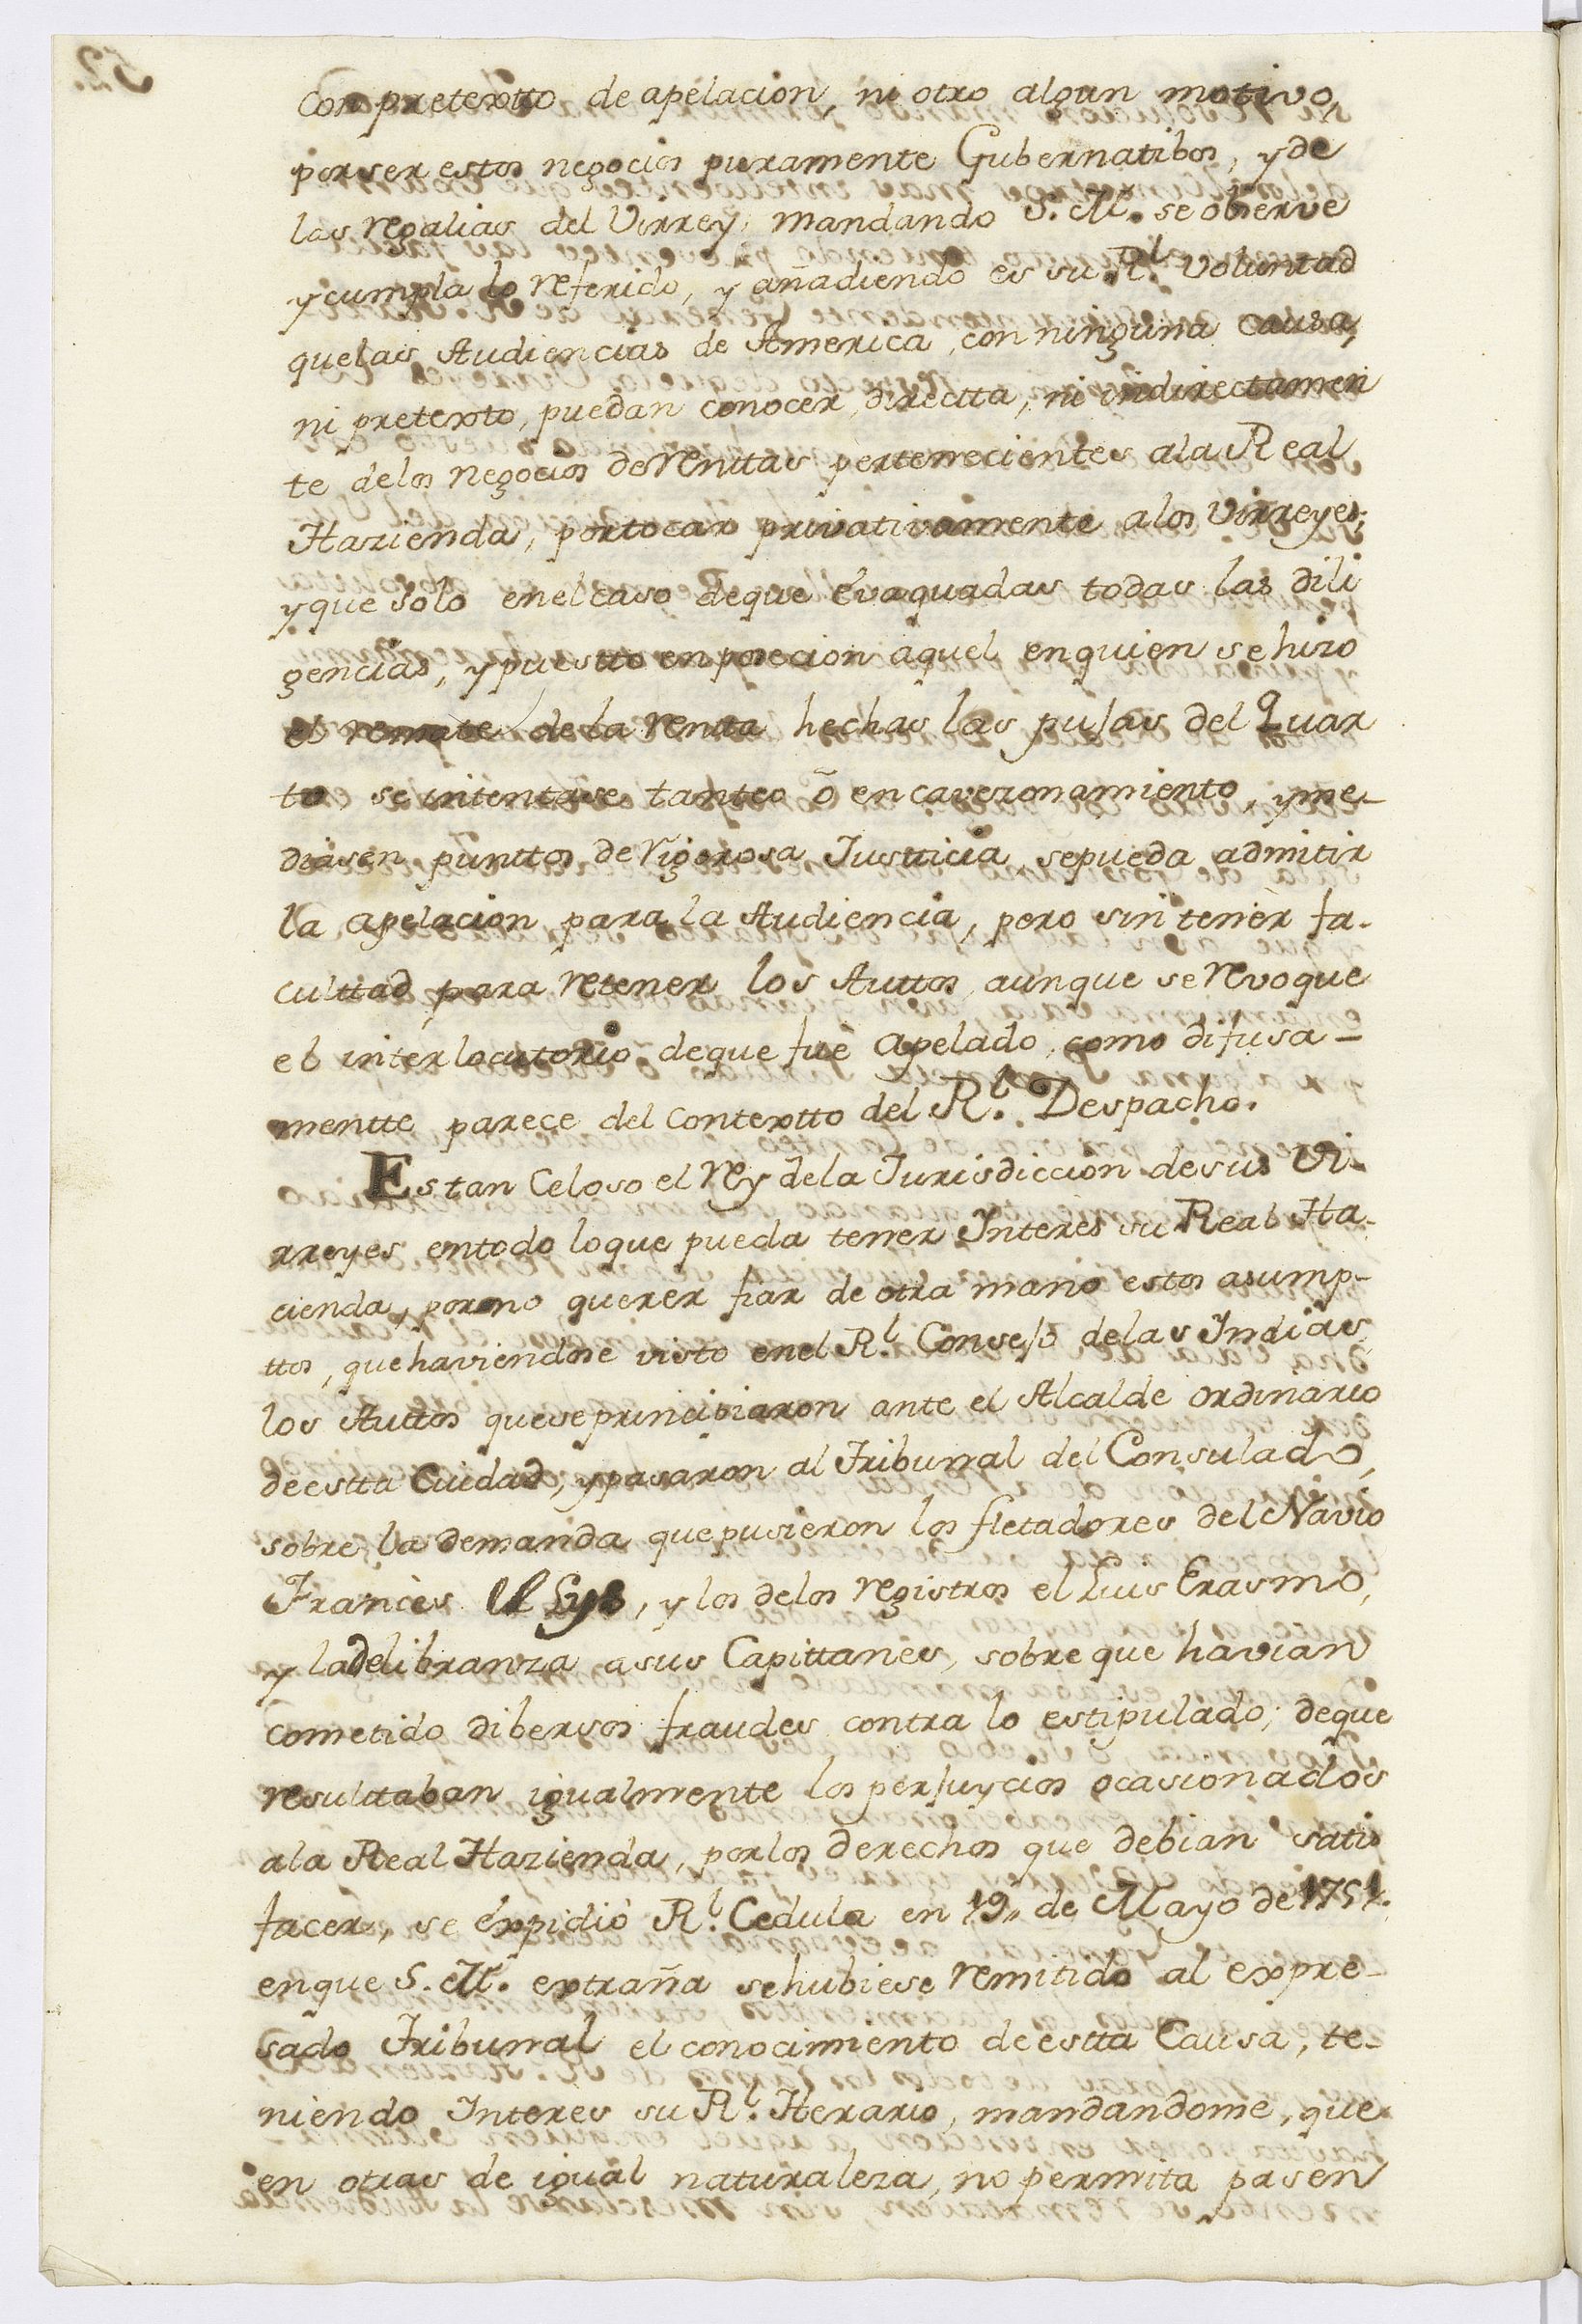 con pretextto de apelacion, ni otro algun motivo,
por ser estos negocios puramente Gubernatibos, y de
las regalias del Virrey, mandando S. M. se observe
y cumpla lo referido, y añadiendo es su Rl. voluntad
que las Audiencias de America, con ninguna causa,
ni pretexto, puedan conocer, directta, ni indirectamen
te de los negocios de renttas pertenecientes a la Real
Hazienda, por tocar privativamente a los Virreyes;
y que solo en el caso de que evaquadas todas las dili
gencias, y puestto en posecion aquel en quien se hizo
el remate de la rentta hechas las pujas del Quar
to se intentase tanteo ó encavezonamiento, y me-
diasen punttos de rigorosa Justticia, se pueda admitir
la apelacion para la Audiencia, pero sin tenèr fa-
culttad para retener los Auttos, aunque se revoque
el interlocutorio de que fué apelado, como difusa-
mentte parece del contextto del Rl. Despacho.
Es tan Celoso el rey de la Jurisdiccion de sus Vi-
rreyes en todo lo que pueda tener Interès su Real Ha-
cienda, por no querer fiar de otra mano estos asump-
ttos, que haviendose visto en el Rl. Consejo de las Indias
los Auttos que se principiaron ante el Alcalde ordinario
de estta Ciudad, y pasaron al Tribunal del Consulado,
sobre la demanda que pusieron los fletadores del Navio
Francès el Lys, y los de los registros el Luis Erasmo,
y la delibranza a sus Capittanes, sobre que havian
cometido dibersos fraudes contra lo estipulado; de que
resulttaban igualmente los perjuycios ocasionados
a la Real Hazienda, por los derechos que debian satis
facer, se éxpidió Rl. Cedula en 19,, de Mayo de 1751.
en que S. M. extraña se hubiese remitido al expre-
sado Tribunal el conocimiento de estta Causa, te-
niendo Interes su Rl. Herario, mandandome, que
en otras de igual naturaleza, no permita pasen